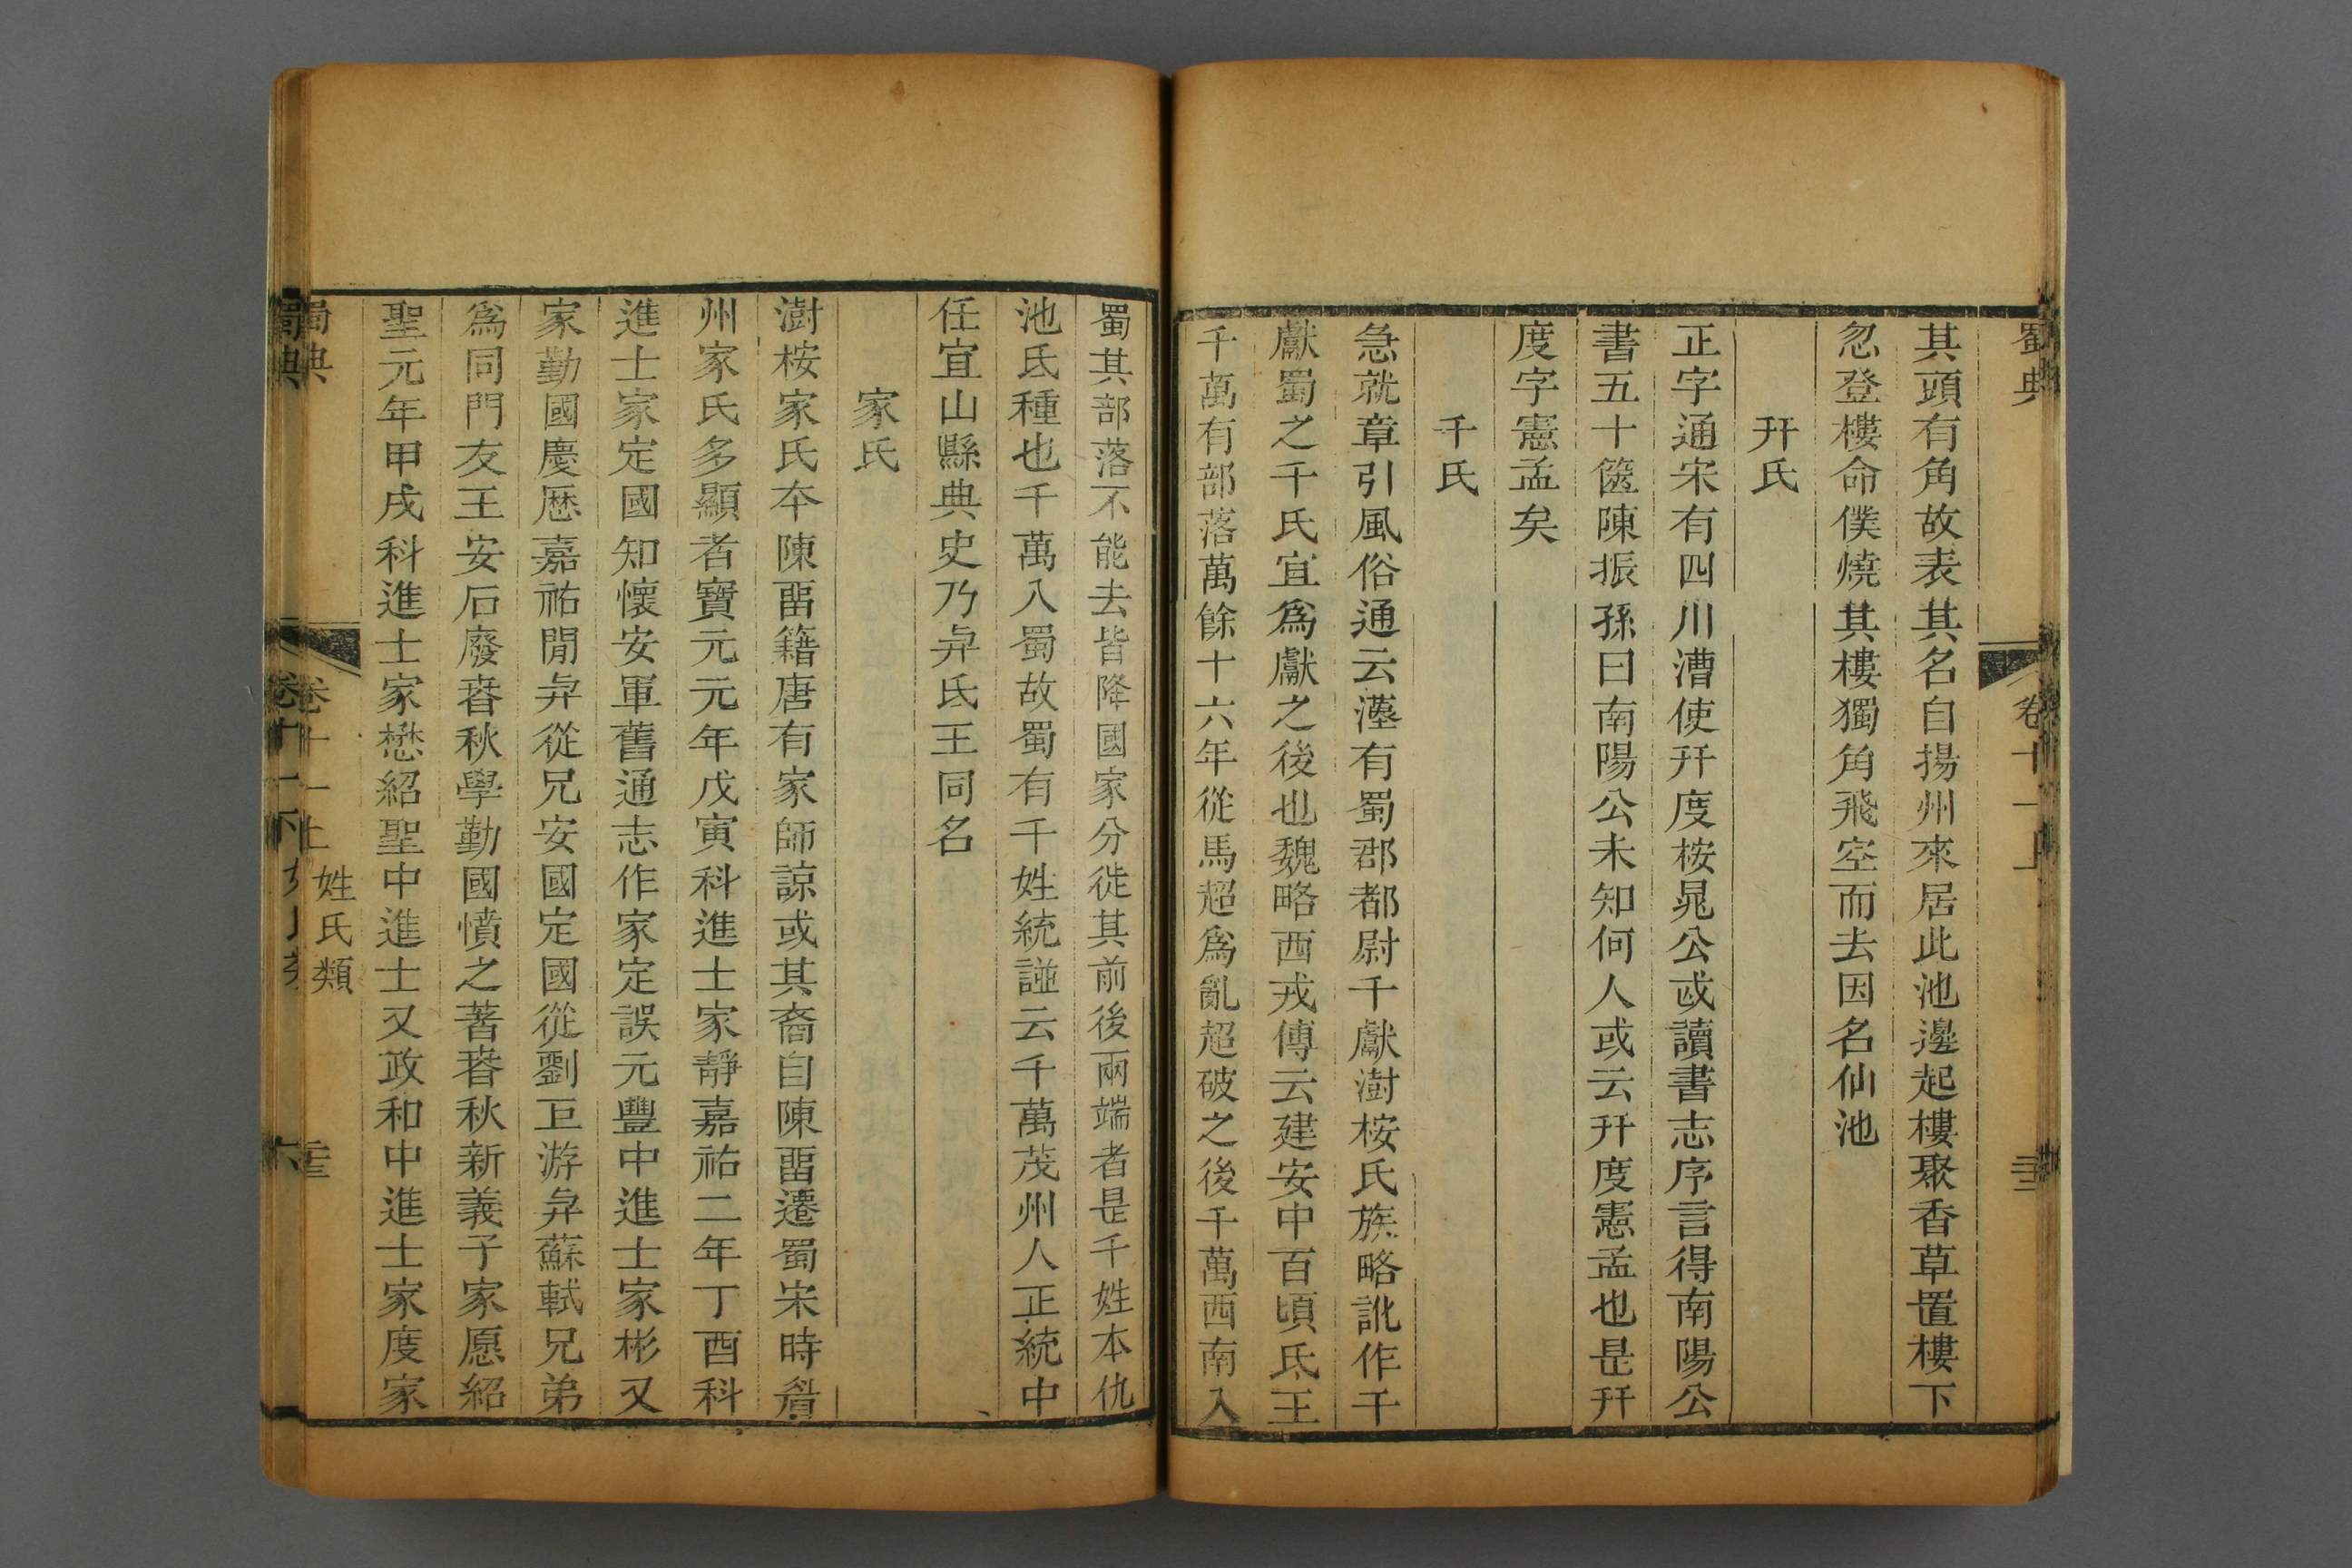 蜀典
卷十一上
其頭有角故表其名自揚州來居此池邊起樓聚香草置樓下
忽登樓命僕燒其樓獨角飛空而去因名仙池
幵氏
正字通宋有四川漕使幵度桉晁公或讀書志序言得南陽公
書五十篋陳振孫曰南陽公未知何人或云幵度憲孟也是幵
度字憲孟矣
千氏
急就章引風俗通云漢有蜀郡都尉千獻澍桉氏族略訛作干
獻蜀之千氏宜爲獻之後也魏略西戎傳云建安中百頃氐王
千萬有部落萬餘十六年從馬超爲亂超破之後千萬西南入
蜀其部落不能去皆降國家分徙其前後兩端者是千姓本仇
池氐種也千萬入蜀故蜀有千姓統譜云千萬茂州人正統中
任宜山縣典史乃與氐王同名
家氏
澍桉家氏本陳畱籍唐有家師諒或其裔自陳畱遷蜀宋時眉
州家氏多顯者寶元元年戊寅科進士家靜嘉祐二年丁酉科
進士家定國知懷安軍舊通志作家定誤元豐中進士家彬又
家勤國慶歷嘉祐閒與從兄安國定國從劉巨游與蘇軾兄弟
爲同門友王安石廢春秋學勤國憤之著春秋新義子家愿紹
聖元年甲戌科進士家懋紹聖中進士又政和中進士家度家
蜀典
卷十一上
姓氏類
蜀典
卷十一下
六